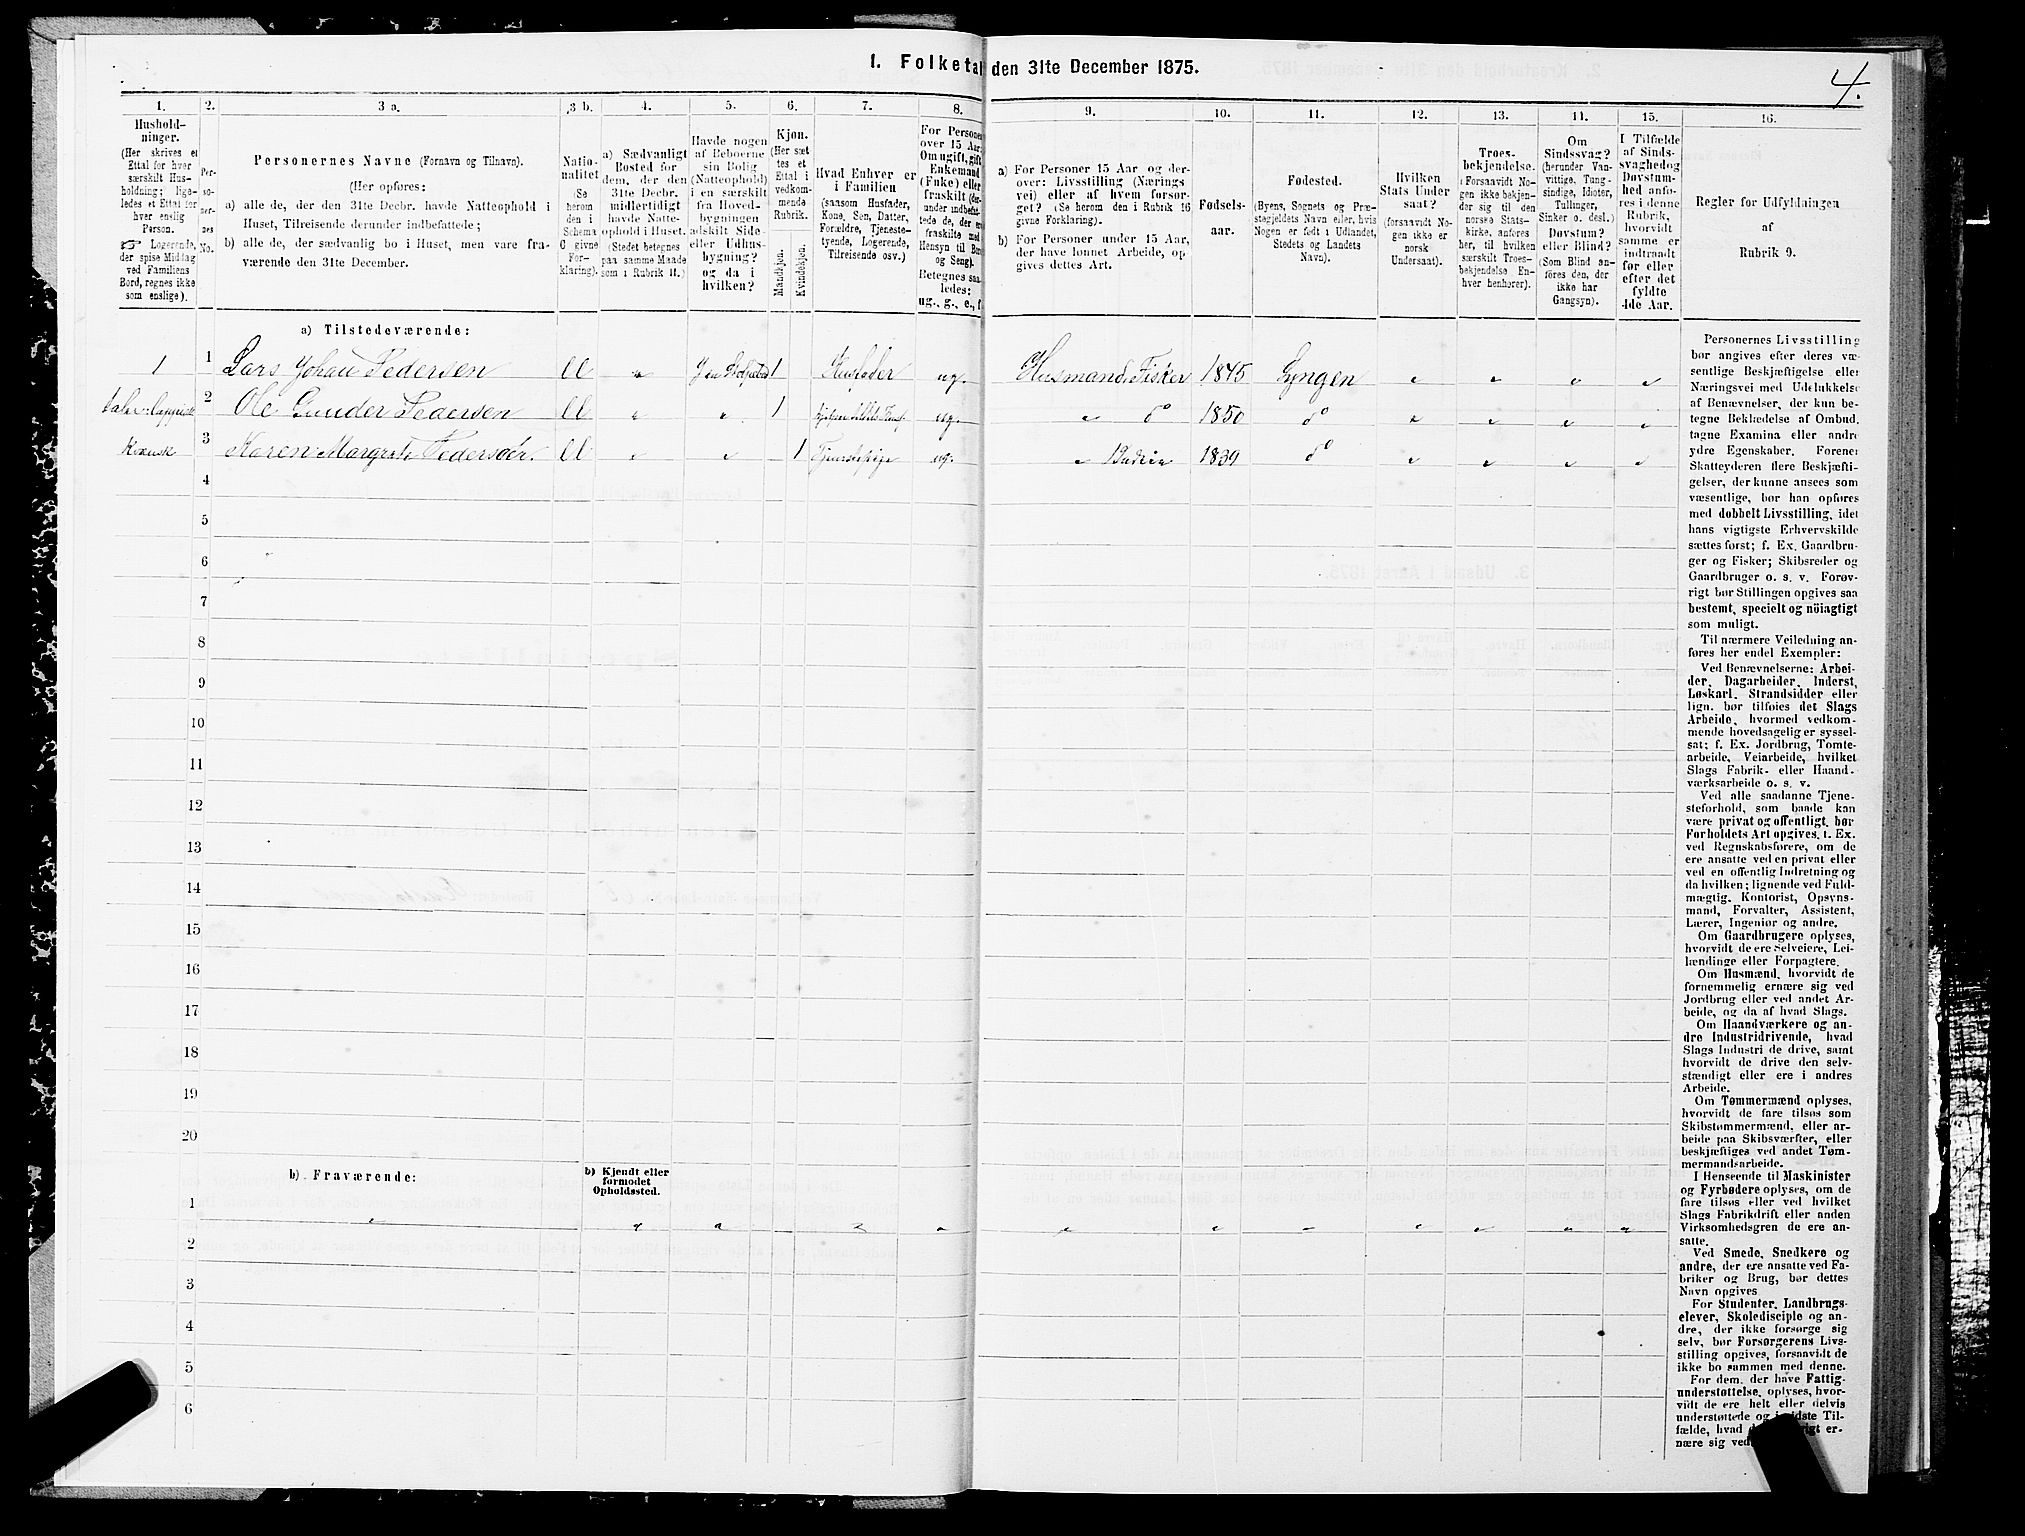 1. Folketal den 31te December 1875.
4.
1. 2. 3 a. 3 b. 4. 5. 6. 7. 8. 9. 10. 11. 12. 13. 14. 15. 16.
Hushold-
ninger.
(Her skrives et
Ettal for hver
særskilt Hus-
holdning; lige-
ledes et Ettal for
hver enslig
Person.
☞ Logerende,
der spise Middag
ved Familiens
Bord, regnes ikke
som enslige).
Per-
so-
ner-
nes
No.
Personernes Navne (Fornavn og Tilnavn).
(Her opføres:
a) alle de, der den 31te Decbr. havde Natteophold i
Huset, Tilreisende derunder indbefattede;
b) alle de, der sædvanlig bo i Huset, men vare fra-
værende den 31te December.
Natio-
nalitet
(Se
herom
den i
Schema
C givne
For-
klaring).
a) Sædvanligt
Bosted for
dem, der den
31te Decbr.
midlertidigt
havde Natte-
ophold i Huset.
(Stedet betegnes
paa samme Maade
som i Rubrik 11.)
Havde nogen
af Beboerne
sin Bolig
(Natteophold)
i en særskilt
fra Hoved-
bygningen
adskilt Side-
eller Udhus-
bygning?
og da i
hvilken?
Kjøn.
(Her sæt
tes et
Ettal i
vedkom-
mende
Rubrik.
Mandkjøn.
Kvindekjøn.
Hvad Enhver er
i Familien
(saasom Husfader,
Kone, Søn, Datter,
Forældre, Tjeneste-
tyende, Logerende,
Tilreisende osv.)
For Personer
over 15 Aar:
Om ugift, gift,
Enkemand
(Enke) eller
fraskilt (der-
under indbefat-
tede de, der ere
fraskilte med
Hensyn til Bord
og Seng).
Betegnes saa-
ledes:
ug., g., e., f.
a) For Personer 15 Aar og der-
over: Livsstilling (Nærings
vei) eller af hvem forsør-
get? (Se herom den i Rubrik 16
givne Forklaring).
b) For Personer under 15 Aar,
der have lønnet Arbeide, op
gives dettes Art.
Fødsels-
aar.
Fødested.
(Byens, Sognets og Præ-
stegjeldets Navn eller, hvis
Nogen er født i Udlandet,
Stedets og Landets
Navn).
Hvilken
Stats Under
saat?
(forsaavidt No-
gen ikke er
norsk
Undersaat).
Troes-
bekjendelse.
(Forsaavidt No-
gen ikke bekjen-
der sig til den
norske Stats-
kirke, anføres
her, til hvilken
særskilt Troes-
bekjendelse En-
hver henhører).
Om
Sindssvag?
(herunder Van-
vittige, Tung-
sindige, Idioter,
Tullinger,
Sinker o. desl.)
Døvstum?
eller Blind?
(Som Blind an-
føres den, der
ikke har
Gangsyn).
I Tilfælde
af Sinds-
svaghed og
Døvstum-
hed anfø-
res i denne
Rubrik,
hvorvidt
samme er
indtraadt
før eller
efter det
fyldte
4de Aar.
Regler for Udfyldningen
af
Rubrik 9.
a) Tilstedeværende:
1 1 Lars Johan Pedersen 1 Husfader ug. Husmand, Fisker 1845 Lyngen
2 Ole Gunder Pedersen 1 ug. " do 1850 do
Kvænsk 3 Karen Margrete Pedersdr. 1 Tjenestepige ug. " Budeie 1839 do
4
5
6
7
8
9
10
11
12
13
14
15
16
17
18
19
20
b) Fraværende:
b) Kjendt eller
formodet
Opholdssted.
1
2
3
4
5
6
Personernes Livsstilling
bør angives efter deres væ-
sentlige Beskjæftigelse eller
Næringsvei med Udelukkelse
af Benævnelser, der kun be-
tegne Beklædelse af Ombud,
tagne Examina eller andre
ydre Egenskaber. Forener
Skatteyderen flere Beskjæfti-
gelser, der kunne ansees som
væsentlige, bør han opføres
med dobbelt Livsstilling, idet
hans vigtigste Erhvervskilde
sættes først; f. Ex. Gaardbru-
ger og Fisker; Skibsreder og
Gaardbruger o. s. v. Forøv-
rigt bør Stillingen opgives saa
bestemt, specielt og nöiagtigt
som muligt.
Til nærmere Veiledning an-
føres her endel Exempler:
Ved Benævnelserne: Arbei-
der, Dagarbeider, Inderst,
Løskarl, Strandsidder eller
lign. bør tilføies det Slags
Arbeide, hvormed vedkom-
mende hovedsagelig er syssel-
sat; f. Ex. Jordbrug, Tomte-
arbeide, Veiarbeide, hvilket
Slags Fabrik- eller Haand-
værksarbeide o. s. v.
Ved alle saadanne Tjene-
steforhold, som baade kan
være privat og offentligt, bør
Forholdets Art opgives, t. Ex.
ved Regnskabsførere, om de
ere ansatte ved en privat eller
ved en offentlig Indretning og
da hvilken; lignende ved Fuld-
mægtig, Kontorist, Opsyns-
mand, Forvalter, Assistent,
Lærer, Ingeniør og andre.
Om Gaardbrugere oplyses,
hvorvidt de ere Selveiere, Lei-
lændinge eller Forpagtere.
Om Husmænd, hvorvidt de
fornemmelig ernære sig ved
Jordbrug eller ved andet Ar-
beide, og da af hvad Slags.
Om Haandværkere og an-
dre Industridrivende, hvad
Slags Industri de drive, samt
hvorvidt de drive den selv-
stændigt eller ere i andres
Arbeide.
Om Tømmermænd oplyses,
hvorvidt de fare tilsøs som
Skibstømmermænd, eller ar-
beide paa Skibsværfter, eller
beskjæftiges ved andet Tøm-
mermandsarbeide.
I Henseende til Maskinister
og Fyrbødere oplyses, om de
fare tilsøs eller ved hvilket
Slags Fabrikdrift eller anden
Virksomhedsgren de ere an-
satte.
Ved Smede, Snedkere og
andre, der ere ansatte ved Fa-
briker og Brug, bør dettes
Navn opgives
For Studenter, Landbrugs-
elever, Skoledisciple og an-
dre, der ikke forsørge sig
selv, bør Forsørgerens Livs-
stilling opgives, forsaavidt de
ikke bo sammen med denne.
For dem, der have Fattig-
understøttelse, oplyses, hvor-
vidt de ere helt eller delvis
understøttede og i sidste Til-
fælde, hvad de forøvrigt er-
nære sig ved